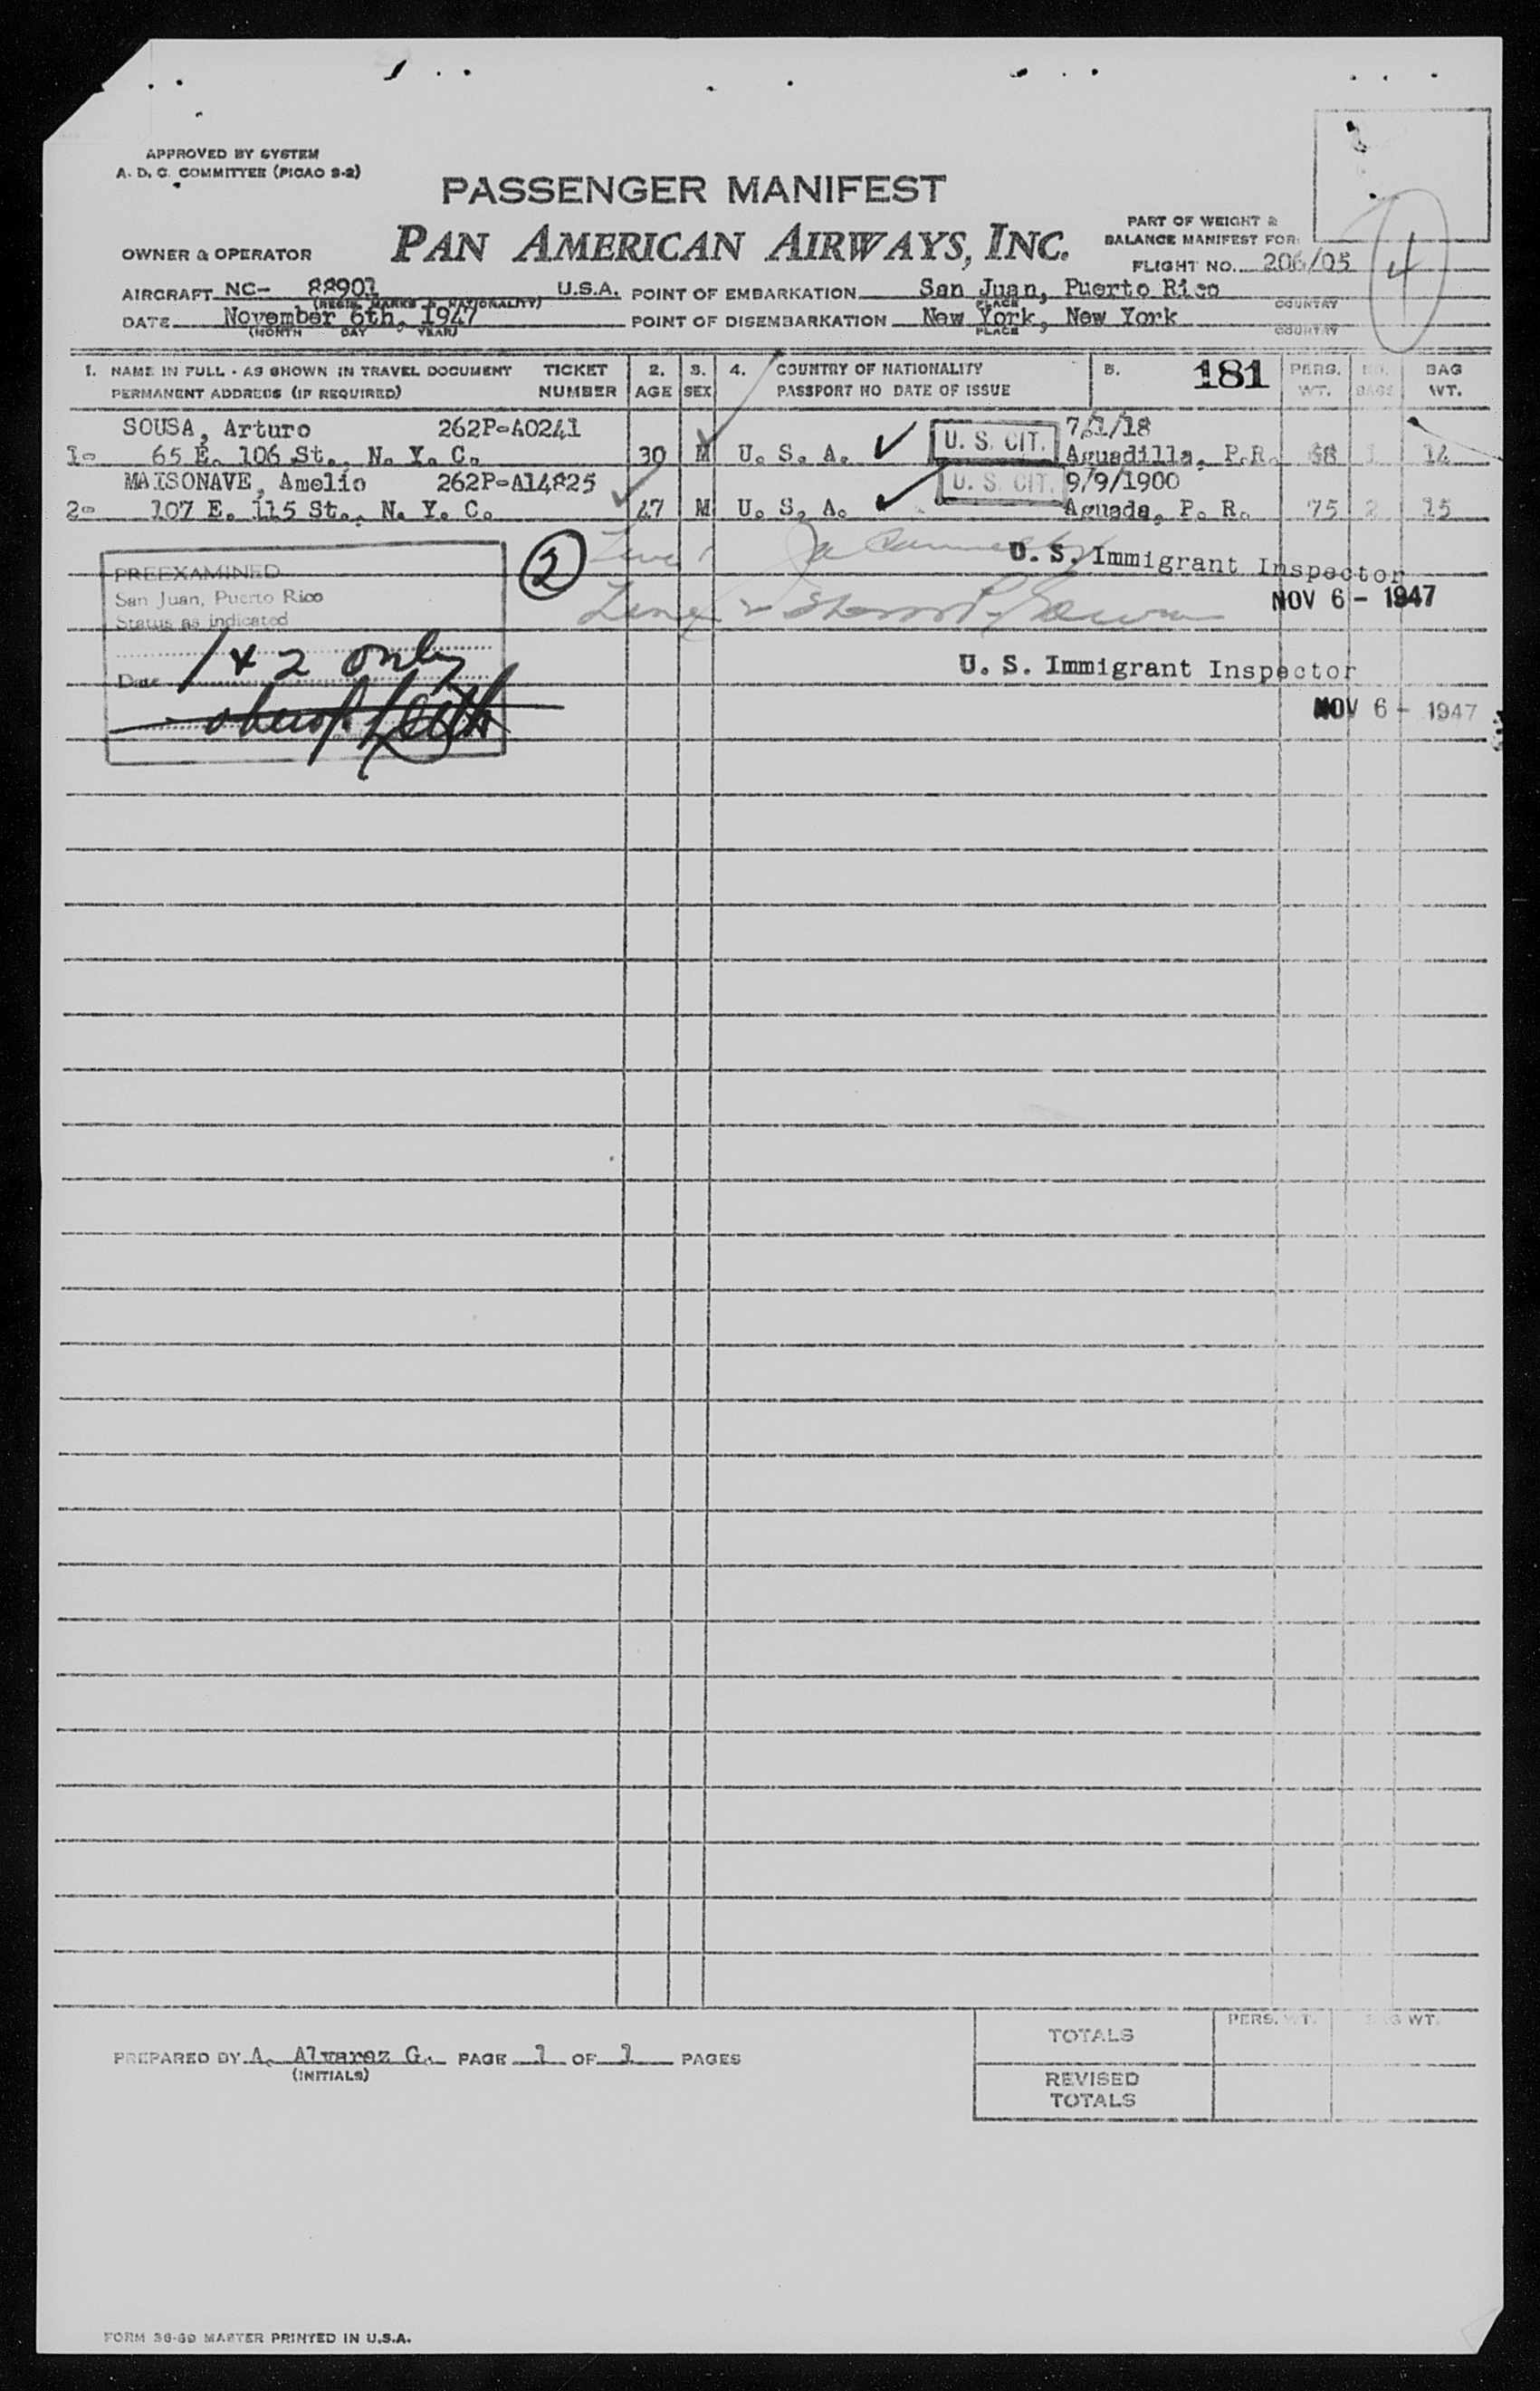 APPROVED BY SYSTEM
A. D. C. COMMITTEE (PICAO S-2)
PASSENGER MANIFEST
PAN AMERICAN AIRWAYS, INC.
OWNER & OPERATOR
PART OF WEIGHT &
BALANCE MANIFEST FOR:
FLIGHT NO. 206/05
4
AIRCRAFT NC- 88901 U.S.A. POINT OF EMBARKATION San Juan, Puerto Rico
(REGIS. MARKS & NATIONALITY) PLACE COUNTRY
DATE November 6th, 1947 POINT OF DISEMBARKATION New York, New York
(MONTH DAY YEAR) PLACE COUNTRY
1. NAME IN FULL - AS SHOWN IN TRAVEL DOCUMENT TICKET 2. 3. 4. COUNTRY OF NATIONALITY 5. 181 PERS. NO. BAG
PERMANENT ADDRESS (IF REQUIRED) NUMBER AGE SEX PASSPORT NO DATE OF ISSUE WT. BAGS WT.
SOUSA, Arturo 262P-A0241 7/1/18
1- 65 E. 106 St., N. Y. C. 30 M U. S. A. U. S. CIT. Aguadilla, P.R. 68 1 14
MAISONAVE, Amelio 262P-A14825 U. S. CIT. 9/9/1900
2- 107 E. 115 St., N. Y. C. 47 M U. S. A. Aguada, P. R. 75 2 15
PREEXAMINED
San Juan, Puerto Rico
Status as indicated
1 & 2 only
Date
2
Line 1
U. S. Immigrant Inspector
NOV 6 - 1947
Line 2
U. S. Immigrant Inspector
NOV 6 - 1947
TOTALS PERS. WT. BAG WT.
REVISED
TOTALS
PREPARED BY A. Alvarez G. PAGE 1 OF 1 PAGES
(INITIALS)
FORM 36-69 MASTER PRINTED IN U.S.A.